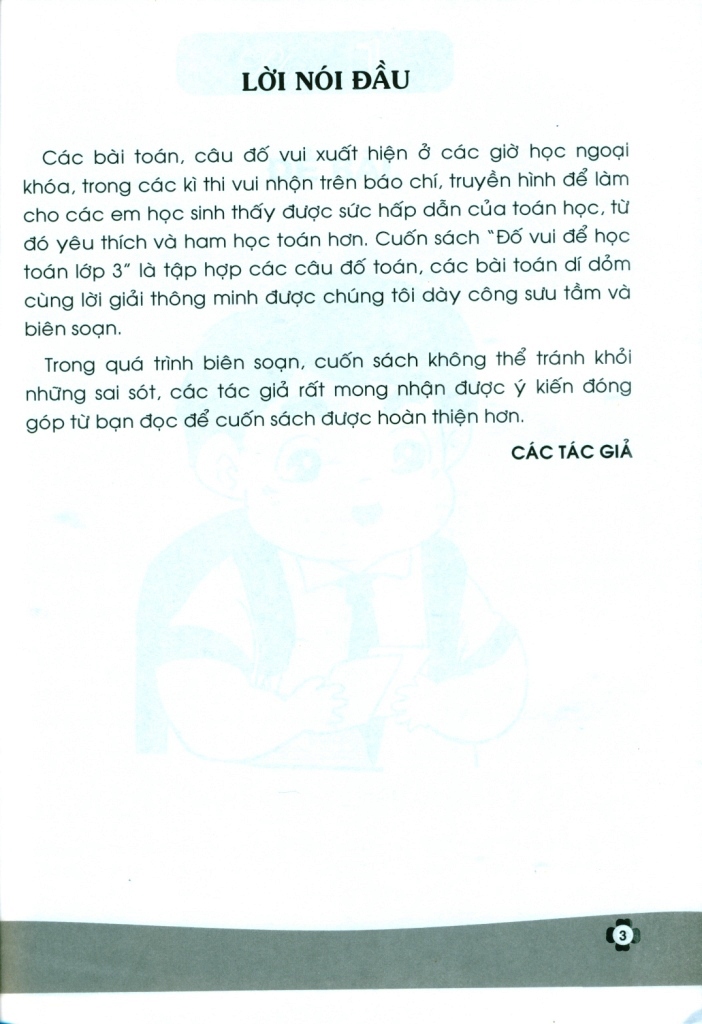 LỜI NÓI ĐẦU
Các bài toán, câu đố vui xuất hiện ở các giờ học ngoại
khóa, trong các kì thi vui nhộn trên báo chí, truyền hình để làm
cho các em học sinh thấy được sức hấp dẫn của toán học, từ
đó yêu thích và ham học toán hơn. Cuốn sách “Đố vui để học
toán lớp 3” là tập hợp các câu đố toán, các bài toán dí dỏm
cùng lời giải thông minh được chúng tôi dày công sưu tầm và
biên soạn.
Trong quá trình biên soạn, cuốn sách không thể tránh khỏi
những sai sót, các tác giả rất mong nhận được ý kiến đóng
góp từ bạn đọc để cuốn sách được hoàn thiện hơn.
CÁC TÁC GIẢ
3